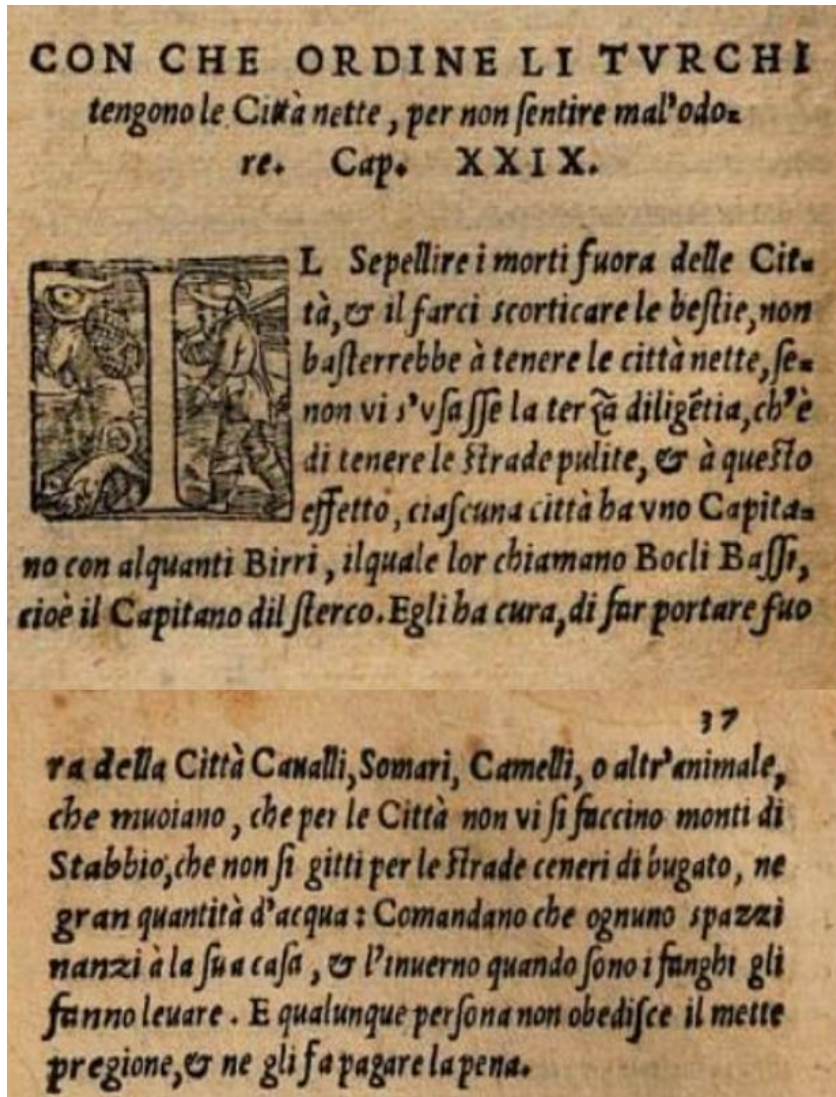 CON CHE ORDINE LI TVRCHI
tengono le Città nette, per non ſentire mal'odo-
re. Cap. XXIX.
IL Sepellire i morti fuora delle Cit-
tà, & il farci scorticare le beſtie, non
baſterrebbe à tenere le città nette, ſe-
non vi s'vſaſſe la terça diligẽtia, ch'è
di tenere le ſtrade pulite, & à queſto
effetto, ciaſcuna città ha vno Capita-
no con alquanti Birri, ilquale lor chiamano Bocli Baſſi,
cioè il Capitano dil ſterco. Egli ha cura, di far portare fuo
37
ra della Città Caualli, Somari, Camelli, o altr'animale,
che muoiano, che per le Città non vi ſi faccino monti di
Stabbio, che non ſi gitti per le ſtrade ceneri di bugato, ne
gran quantità d'acqua: Comandano che ognuno spazzi
nanzi à la ſua caſa, & l'inuerno quando ſono i fanghi gli
fanno leuare. E qualunque perſona non obediſce il mette
pregione, & ne gli fa pagare la pena.